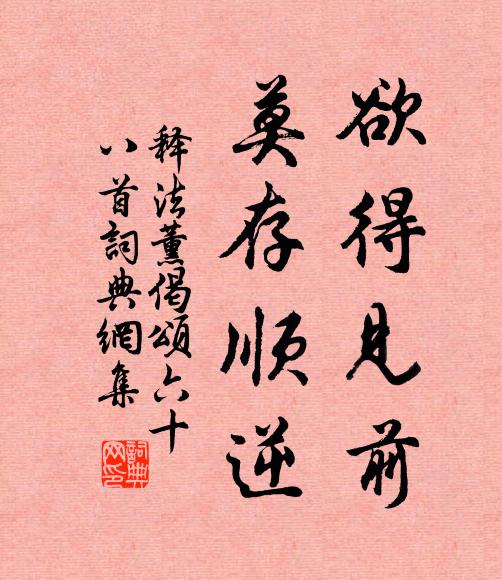 欲得見前
莫存順逆
释法薰偈頌六十
八首詞典網集
詞典
网印